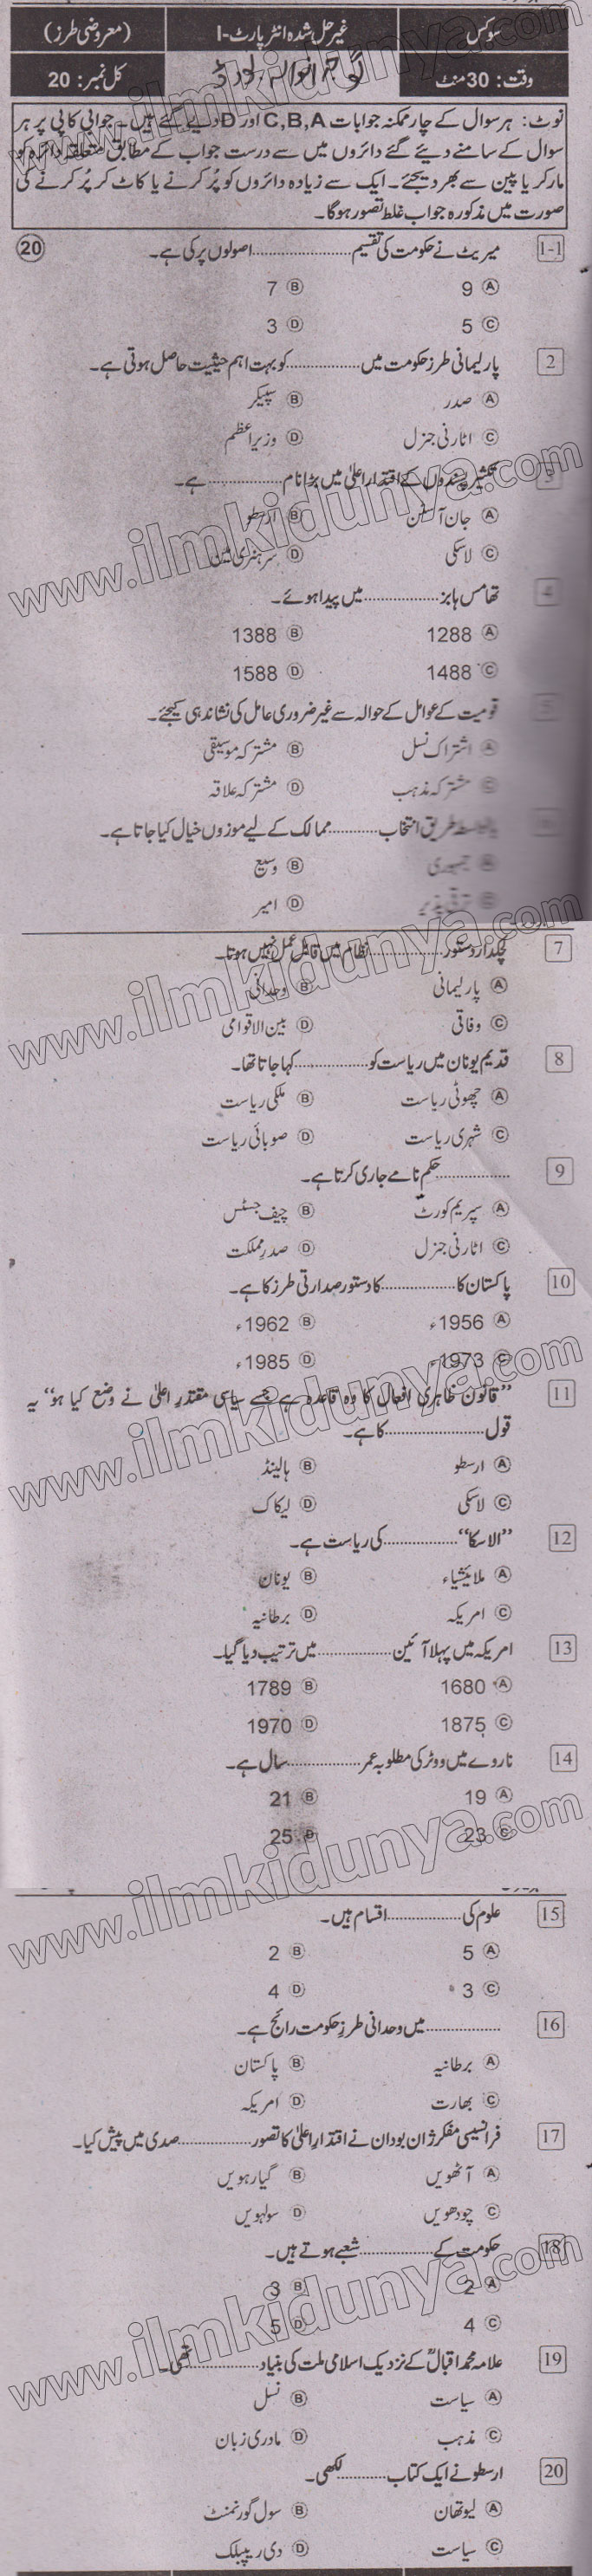 سوکس
غیر حل شدہ انٹر پارٹ-I
(معروضی طرز)
وقت: 30 منٹ
گوجرانوالہ بورڈ
کل نمبر: 20
نوٹ: ہر سوال کے چار ممکنہ جوابات C,B,A اور D دیئے گئے ہیں۔ جوابی کاپی پر ہر
سوال کے سامنے دیئے گئے دائروں میں سے درست جواب کے مطابق متعلقہ دائرہ کو
مارکر یا پین سے بھر دیجئے۔ ایک سے زیادہ دائروں کو پُر کرنے یا کاٹ کر پُر کرنے کی
صورت میں مذکورہ جواب غلط تصور ہوگا۔
1-1 میریٹ نے حکومت کی تقسیم ............ اصولوں پر کی ہے۔ 20
A 9 B 7
C 5 D 3
2 پارلیمانی طرز حکومت میں ............ کو بہت اہم حیثیت حاصل ہوتی ہے۔
A صدر B سپیکر
C اٹارنی جنرل D وزیراعظم
3 تکثیر پسندوں کے اقتدار اعلیٰ میں بڑا نام ............ ہے۔
A جان آسٹن B ارسطو
C لاسکی D سر ہنری مین
4 تھامس ہابز ............ میں پیدا ہوئے۔
A 1288 B 1388
C 1488 D 1588
5 قومیت کے عوامل کے حوالہ سے غیر ضروری عامل کی نشاندہی کیجئے۔
A اشتراک نسل B مشترکہ موسیقی
C مشترکہ مذہب D مشترکہ علاقہ
6 طریق انتخاب ............ ممالک کے لیے موزوں خیال کیا جاتا ہے۔
A جمہوری B وسیع
C ترقی پذیر D امیر
7 لچکدار دستور ............ نظام میں قابل عمل نہیں ہوتا۔
A پارلیمانی B وحدانی
C وفاقی D بین الاقوامی
8 قدیم یونان میں ریاست کو ............ کہا جاتا تھا۔
A چھوٹی ریاست B ملکی ریاست
C شہری ریاست D صوبائی ریاست
9 ............ حکم نامے جاری کرتا ہے۔
A سپریم کورٹ B چیف جسٹس
C اٹارنی جنرل D صدر مملکت
10 پاکستان کا ............ کا دستور صدارتی طرز کا ہے۔
A 1956ء B 1962ء
C 1973ء D 1985ء
11 ’’قانون ظاہری افعال کا وہ قاعدہ ہے جسے سیاسی مقتدر اعلیٰ نے وضع کیا ہو‘‘ یہ
قول ............ کا ہے۔
A ارسطو B ہالینڈ
C لاسکی D لیکاک
12 ’’الاسکا‘‘ ............ کی ریاست ہے۔
A ملائیشیاء B یونان
C امریکہ D برطانیہ
13 امریکہ میں پہلا آئین ............ میں ترتیب دیا گیا۔
A 1680 B 1789
C 1875 D 1970
14 ناروے میں ووٹر کی مطلوبہ عمر ............ سال ہے۔
A 19 B 21
C 23 D 25
15 علوم کی ............ اقسام ہیں۔
A 5 B 2
C 3 D 4
16 ............ میں وحدانی طرزِ حکومت رائج ہے۔
A برطانیہ B پاکستان
C بھارت D امریکہ
17 فرانسیسی مفکر ژان بودان نے اقتدارِ اعلیٰ کا تصور ............ صدی میں پیش کیا۔
A آٹھویں B گیارہویں
C چودھویں D سولہویں
18 حکومت کے ............ شعبے ہوتے ہیں۔
A 2 B 3
C 4 D 5
19 علامہ محمد اقبالؒ کے نزدیک اسلامی ملت کی بنیاد ............ تھی۔
A سیاست B نسل
C مذہب D مادری زبان
20 ارسطو نے ایک کتاب ............ لکھی۔
A لیوتھان B سول گورنمنٹ
C سیاست D دی ریپبلک
www.ilmkidunya.com
www.ilmkidunya.com
www.ilmkidunya.com
www.ilmkidunya.com
www.ilmkidunya.com
www.ilmkidunya.com